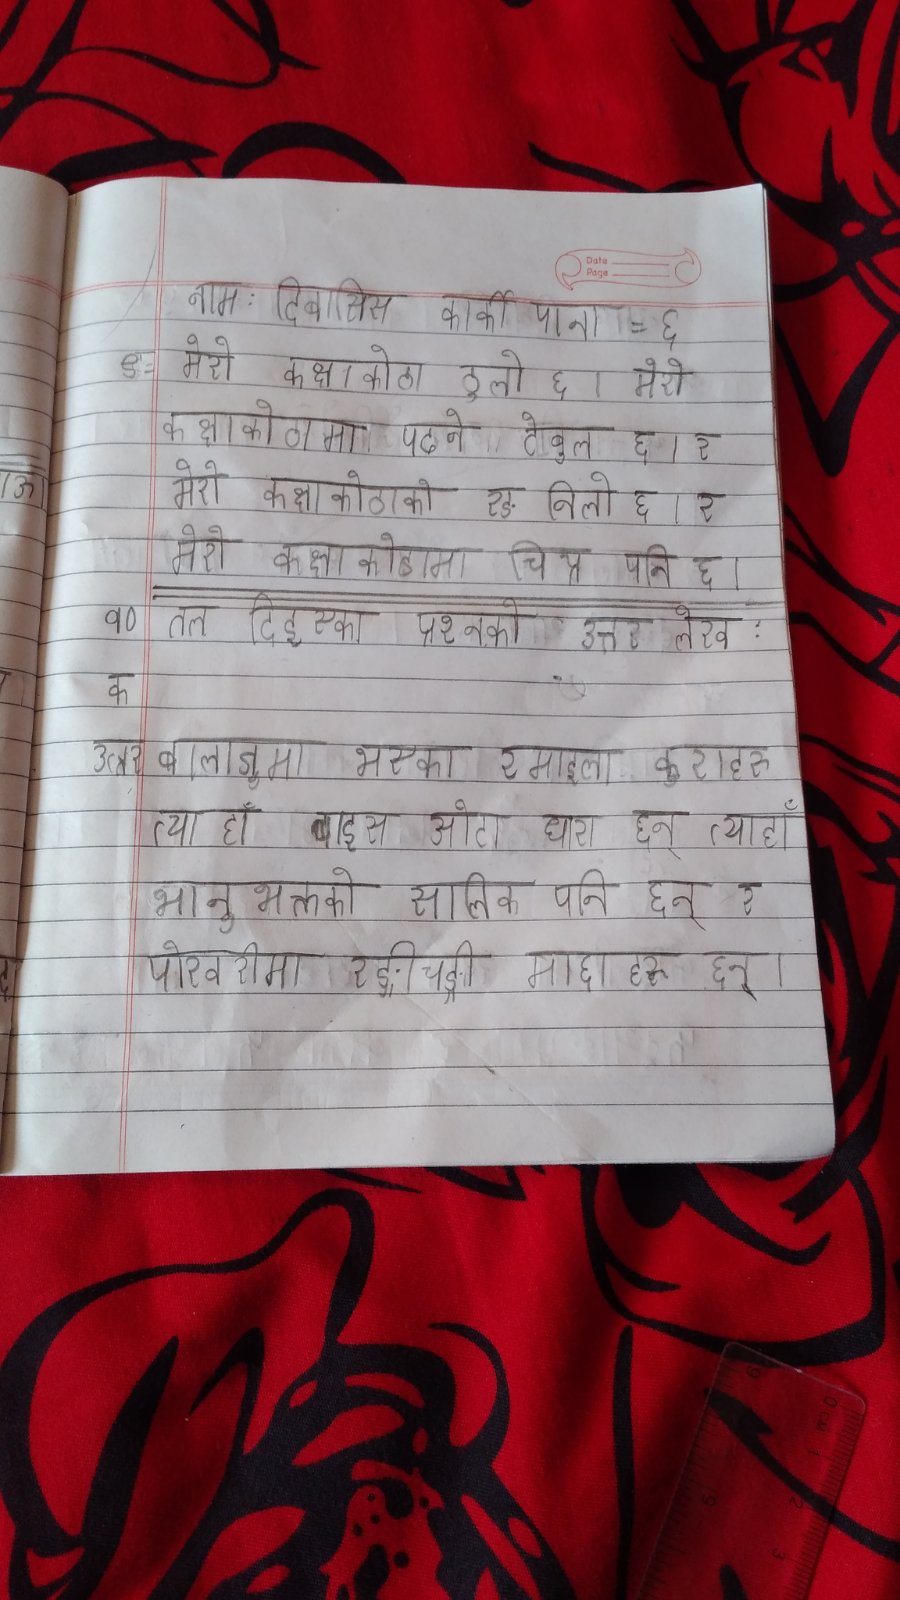 Date
Page
नाम: दिबासिस कार्की पाना = ६
ङ= मेरो कक्षाकोठा ठुलो छ । मेरो
कक्षाकोठामा पढ्ने टेबुल छ । र
मेरो कक्षाकोठाको रङ निलो छ । र
मेरो कक्षाकोठामा चित्र पनि छ ।
१० तल दिइएका प्रश्नको उत्तर लेख :
क
उत्तर बालाजुमा भएका रमाइला कुराहरु
त्याहाँ बाइस ओटा धारा छन् त्याहाँ
भानुभक्तको सालिक पनि छन् र
पोखरीमा रङ्गीचङ्गी माछाहरु छन् ।